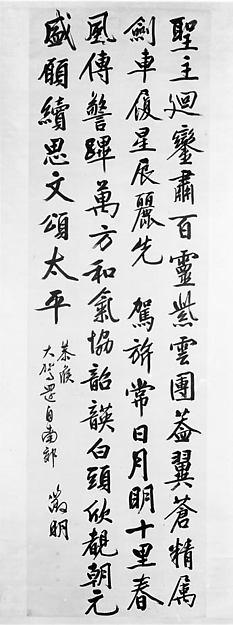 聖主迴鑾肅百靈紫雲團蓋翼蒼精属
劍車履星辰麗先駕旂常日月明十里春
風傳警蹕萬方和氣協韶韺白頭欣覩朝元
盛願續思文頌太平
恭候
大駕還自南郊 徵明